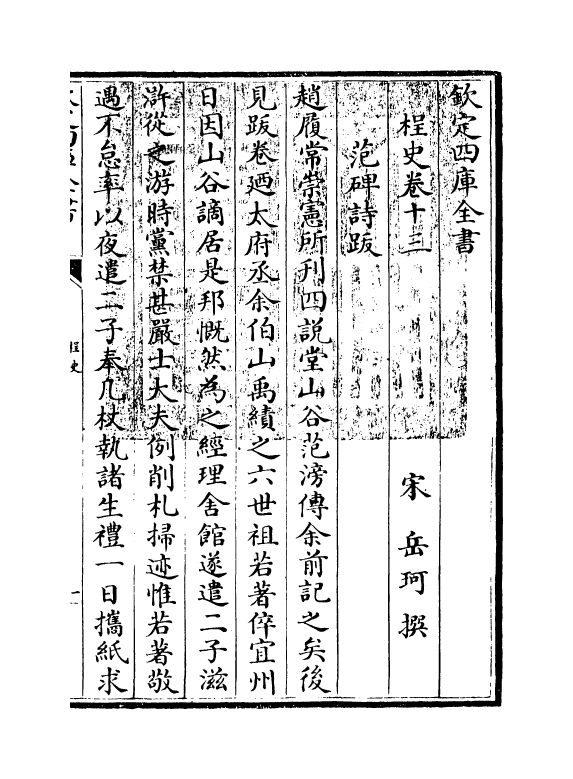 欽定四庫全書
桯史卷十三
宋 岳珂 撰
范碑詩跋
趙履常崇憲所刊四説堂山谷范滂傳余前記之矣後
見跋卷廼太府丞余伯山禹績之六世祖若著倅宜州
日因山谷謫居是邦慨然為之經理舍館遂遣二子滋
滸從之游時黨禁甚嚴士大夫例削札掃迹惟若著敬
遇不怠率以夜遣二子奉几杖執諸生禮一日攜紙求
桯史